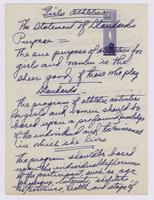 Girls Athletics
The Statement of Standards
Purpose =
The one purpose of athletics for
girls and women is the
sheer good of those who play
Standards
The program of athletic activities
for girls and women should be
based upon a profound
of the individual and
in which she lives
The program should be based
upon the individual differences
of the participant, such as age
health and stage of